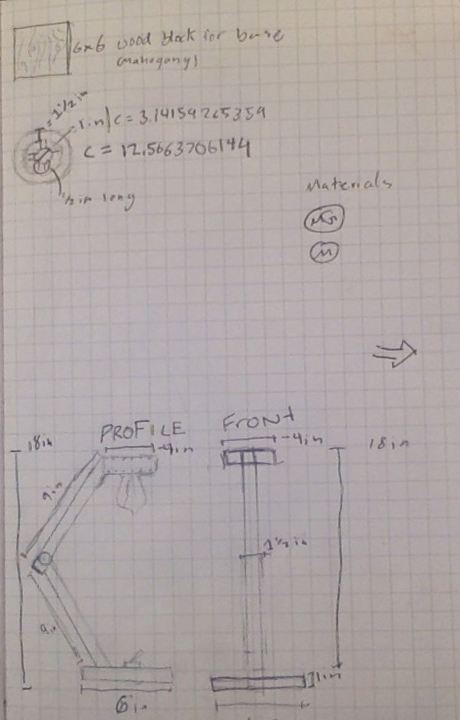 6x6 wood block for base
(mahogany)
1 1/2 in
1 in / c = 3.14159265359
c = 12.5663706144
1/2 in long
Materials
M
PROFILE
FRONT
18in
4in
4in
18in
9in
1 1/2 in
9in
1in
6in